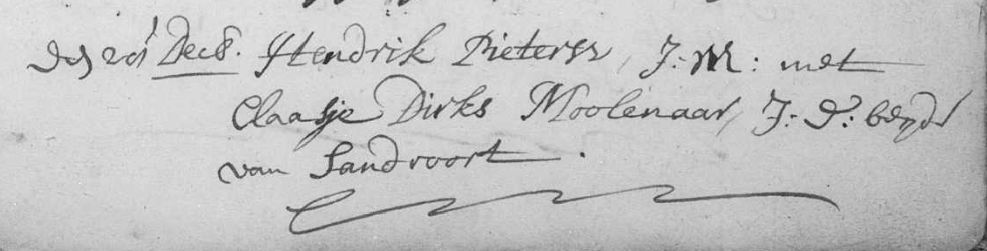 den 20s Decb. Hendrik Pietersz, J: M: met
Claasje Dirks Moolenaar, J: D: beyde
van Sandvoort.